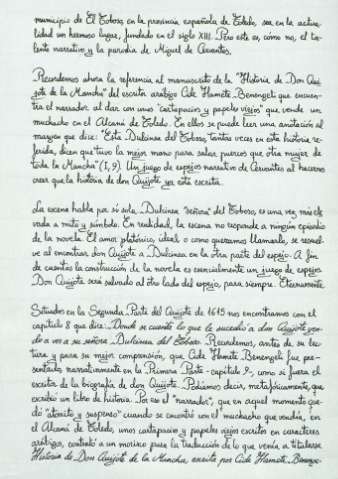 municipio de El Toboso, en la provincia española de Toledo, sea en la actua-
lidad un hermoso lugar, fundado en el siglo XIII. Pero este es, cómo no, el ta-
lento narrativo y la parodia de Miguel de Cervantes.
Recordemos ahora la referencia al manuscrito de la "Historia de Don Qui-
jote de la Mancha" del escritor arábigo Cide Hamete Benengeli que encuen-
tra el narrador al dar con unos "cartapacios y papeles viejos" que vende un
muchacho en el Alcaná de Toledo. En ellos se puede leer una anotación al
margen que dice: "Esta Dulcinea del Toboso, tantas veces en esta historia re-
ferida, dicen que tuvo la mejor mano para salar puercos que otra mujer de
toda la Mancha" (I, 9). Un juego de espejos narrativo de Cervantes al hacernos
creer que la historia de don Quijote ya está escrita.
La escena habla por sí sola. Dulcinea "señora" del Toboso, es una vez más ele-
vada a mito y símbolo. En realidad, la escena no responde a ningún episodio
de la novela. El amor platónico, ideal o como queramos llamarlo, se resuel-
ve al encontrar don Quijote a Dulcinea en la otra parte del espejo. A fin
de cuentas la construcción de la novela es esencialmente un juego de espejos.
Don Quijote será salvado al otro lado del espejo, para siempre. Eternamente.
Situados en la Segunda Parte del Quijote de 1615 nos encontramos con el
capítulo 8 que dice: Donde se cuenta lo que le sucedió a don Quijote yen-
do a ver a su señora Dulcinea del Toboso. Recordemos, antes de su lec-
tura y para su mejor comprensión, que Cide Hamete Benengeli fue pre-
sentado narrativamente en la Primera Parte - capítulo 9-, como si fuera el
escritor de la biografía de don Quijote. Podíamos decir, metafóricamente, que
escribió un libro de historia. Por eso el "narrador", que en aquel momento que-
dó "atónito y suspenso" cuando se encontró con el "muchacho que vendía, en
el Alcaná de Toledo, unos cartapacios y papeles viejos escritos en caracteres
arábigos, contrató a un morisco para la traducción de lo que venía a titularse
Historia de Don Quijote de la Mancha, escrita por Cide Hamete Benenge-